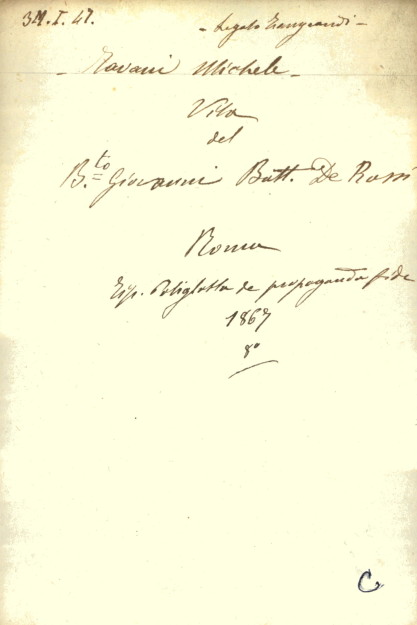 34.I.41.
- Legato Zangrandi -
- Tavani Michele -
Vita
del
B.to Giovanni Batt. De Rossi
Roma
Tip. Poliglotta de propaganda fide
1867
8º
C